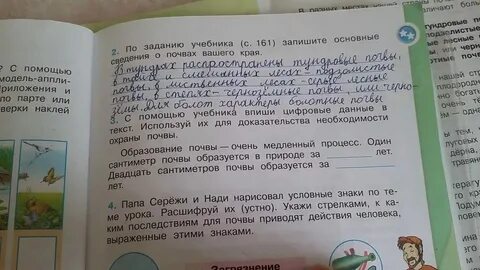 ? С помощью
модель-аппли-
риложения и
по парте или
верки наклей
2. По заданию учебника (с. 161) запишите основные
сведения о почвах вашего края.
В тундрах распространены тундровые почвы,
в тайге и смешанных лесах - подзолистые
почвы, в лиственных лесах - серые лесные
почвы, в степях - черноземные почвы, или черно-
зёмы. Для болот характерны болотные почвы
3. С помощью учебника впиши цифровые данные в
текст. Используй их для доказательства необходимости
охраны почвы.
Образование почвы — очень медленный процесс. Один
сантиметр почвы образуется в природе за лет.
Двадцать сантиметров почвы образуется за
лет.
4. Папа Серёжи и Нади нарисовал условные знаки по те-
ме урока. Расшифруй их (устно). Укажи стрелками, к ка-
ким последствиям для почвы приводят действия человека,
выраженные этими знаками.
Загрязнение